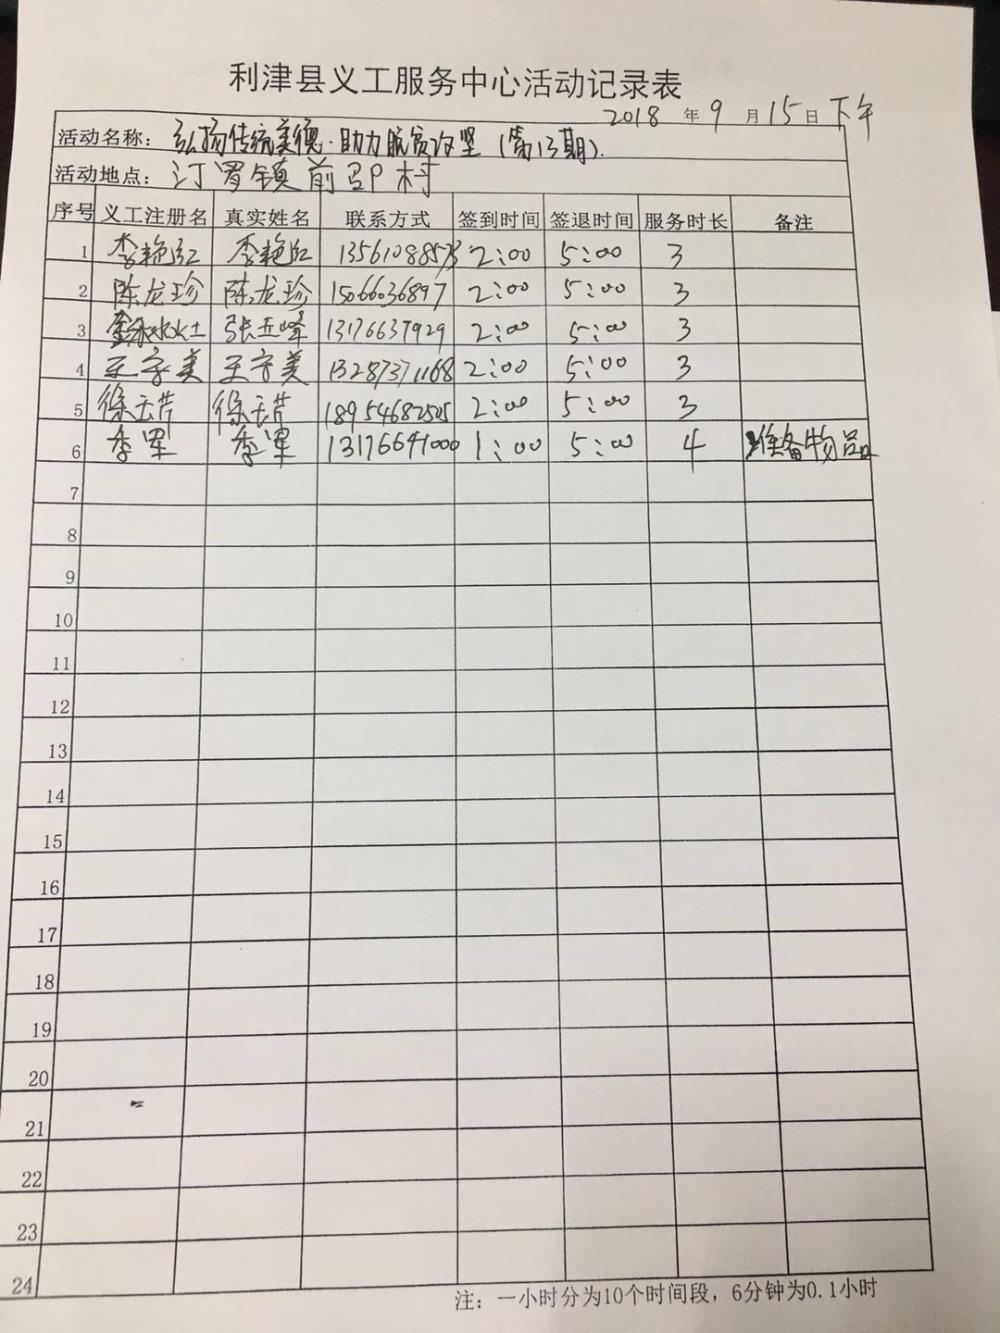 利津县义工服务中心活动记录表
2018 年 9 月 15 日 下午
活动名称：弘扬传统美德·助力脱贫攻坚（第13期）.
活动地点：汀罗镇前邵村
序号 义工注册名 真实姓名 联系方式 签到时间 签退时间 服务时长 备注
1 李艳红 李艳红 2:00 5:00 3
2 陈龙珍 陈龙珍 15066036897 2:00 5:00 3
3 金木水火土 张玉峰 13176637929 2:00 5:00 3
4 王守美 王守美 13287371168 2:00 5:00 3
5 徐云芹 徐云芹 18954682505 2:00 5:00 3
6 季军 季军 13176641000 1:00 5:00 4 准备物品
7
8
9
10
11
12
13
14
15
16
17
18
19
20
21
22
23
24
注：一小时分为10个时间段，6分钟为0.1小时